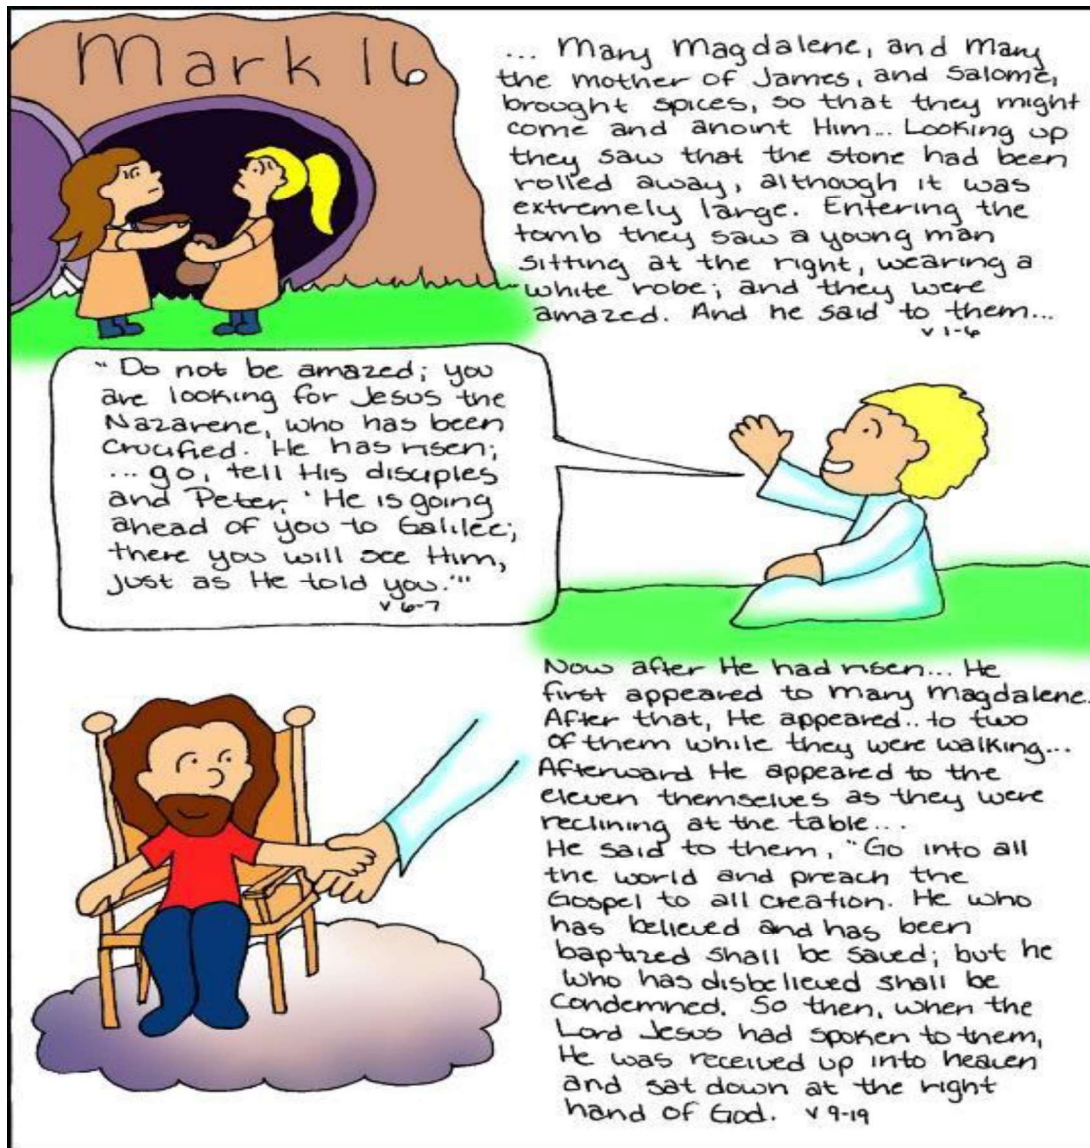 Mark 16
... Mary Magdalene, and Mary
the mother of James, and Salome,
brought spices, so that they might
come and anoint Him... Looking up
they saw that the stone had been
rolled away, although it was
extremely large. Entering the
tomb they saw a young man
sitting at the right, wearing a
white robe; and they were
amazed. And he said to them...
v 1-6
"Do not be amazed; you
are looking for Jesus the
Nazarene, who has been
crucified. He has risen;
... go, tell His disciples
and Peter, 'He is going
ahead of you to Galilee;
there you will see Him,
just as He told you.'"
v 6-7
Now after He had risen... He
first appeared to Mary Magdalene.
After that, He appeared.. to two
of them while they were walking...
Afterward He appeared to the
eleven themselves as they were
reclining at the table...
He said to them, "Go into all
the world and preach the
Gospel to all creation. He who
has believed and has been
baptized shall be saved; but he
who has disbelieved shall be
condemned. So then, when the
Lord Jesus had spoken to them,
He was received up into heaven
and sat down at the right
hand of God. v 9-19